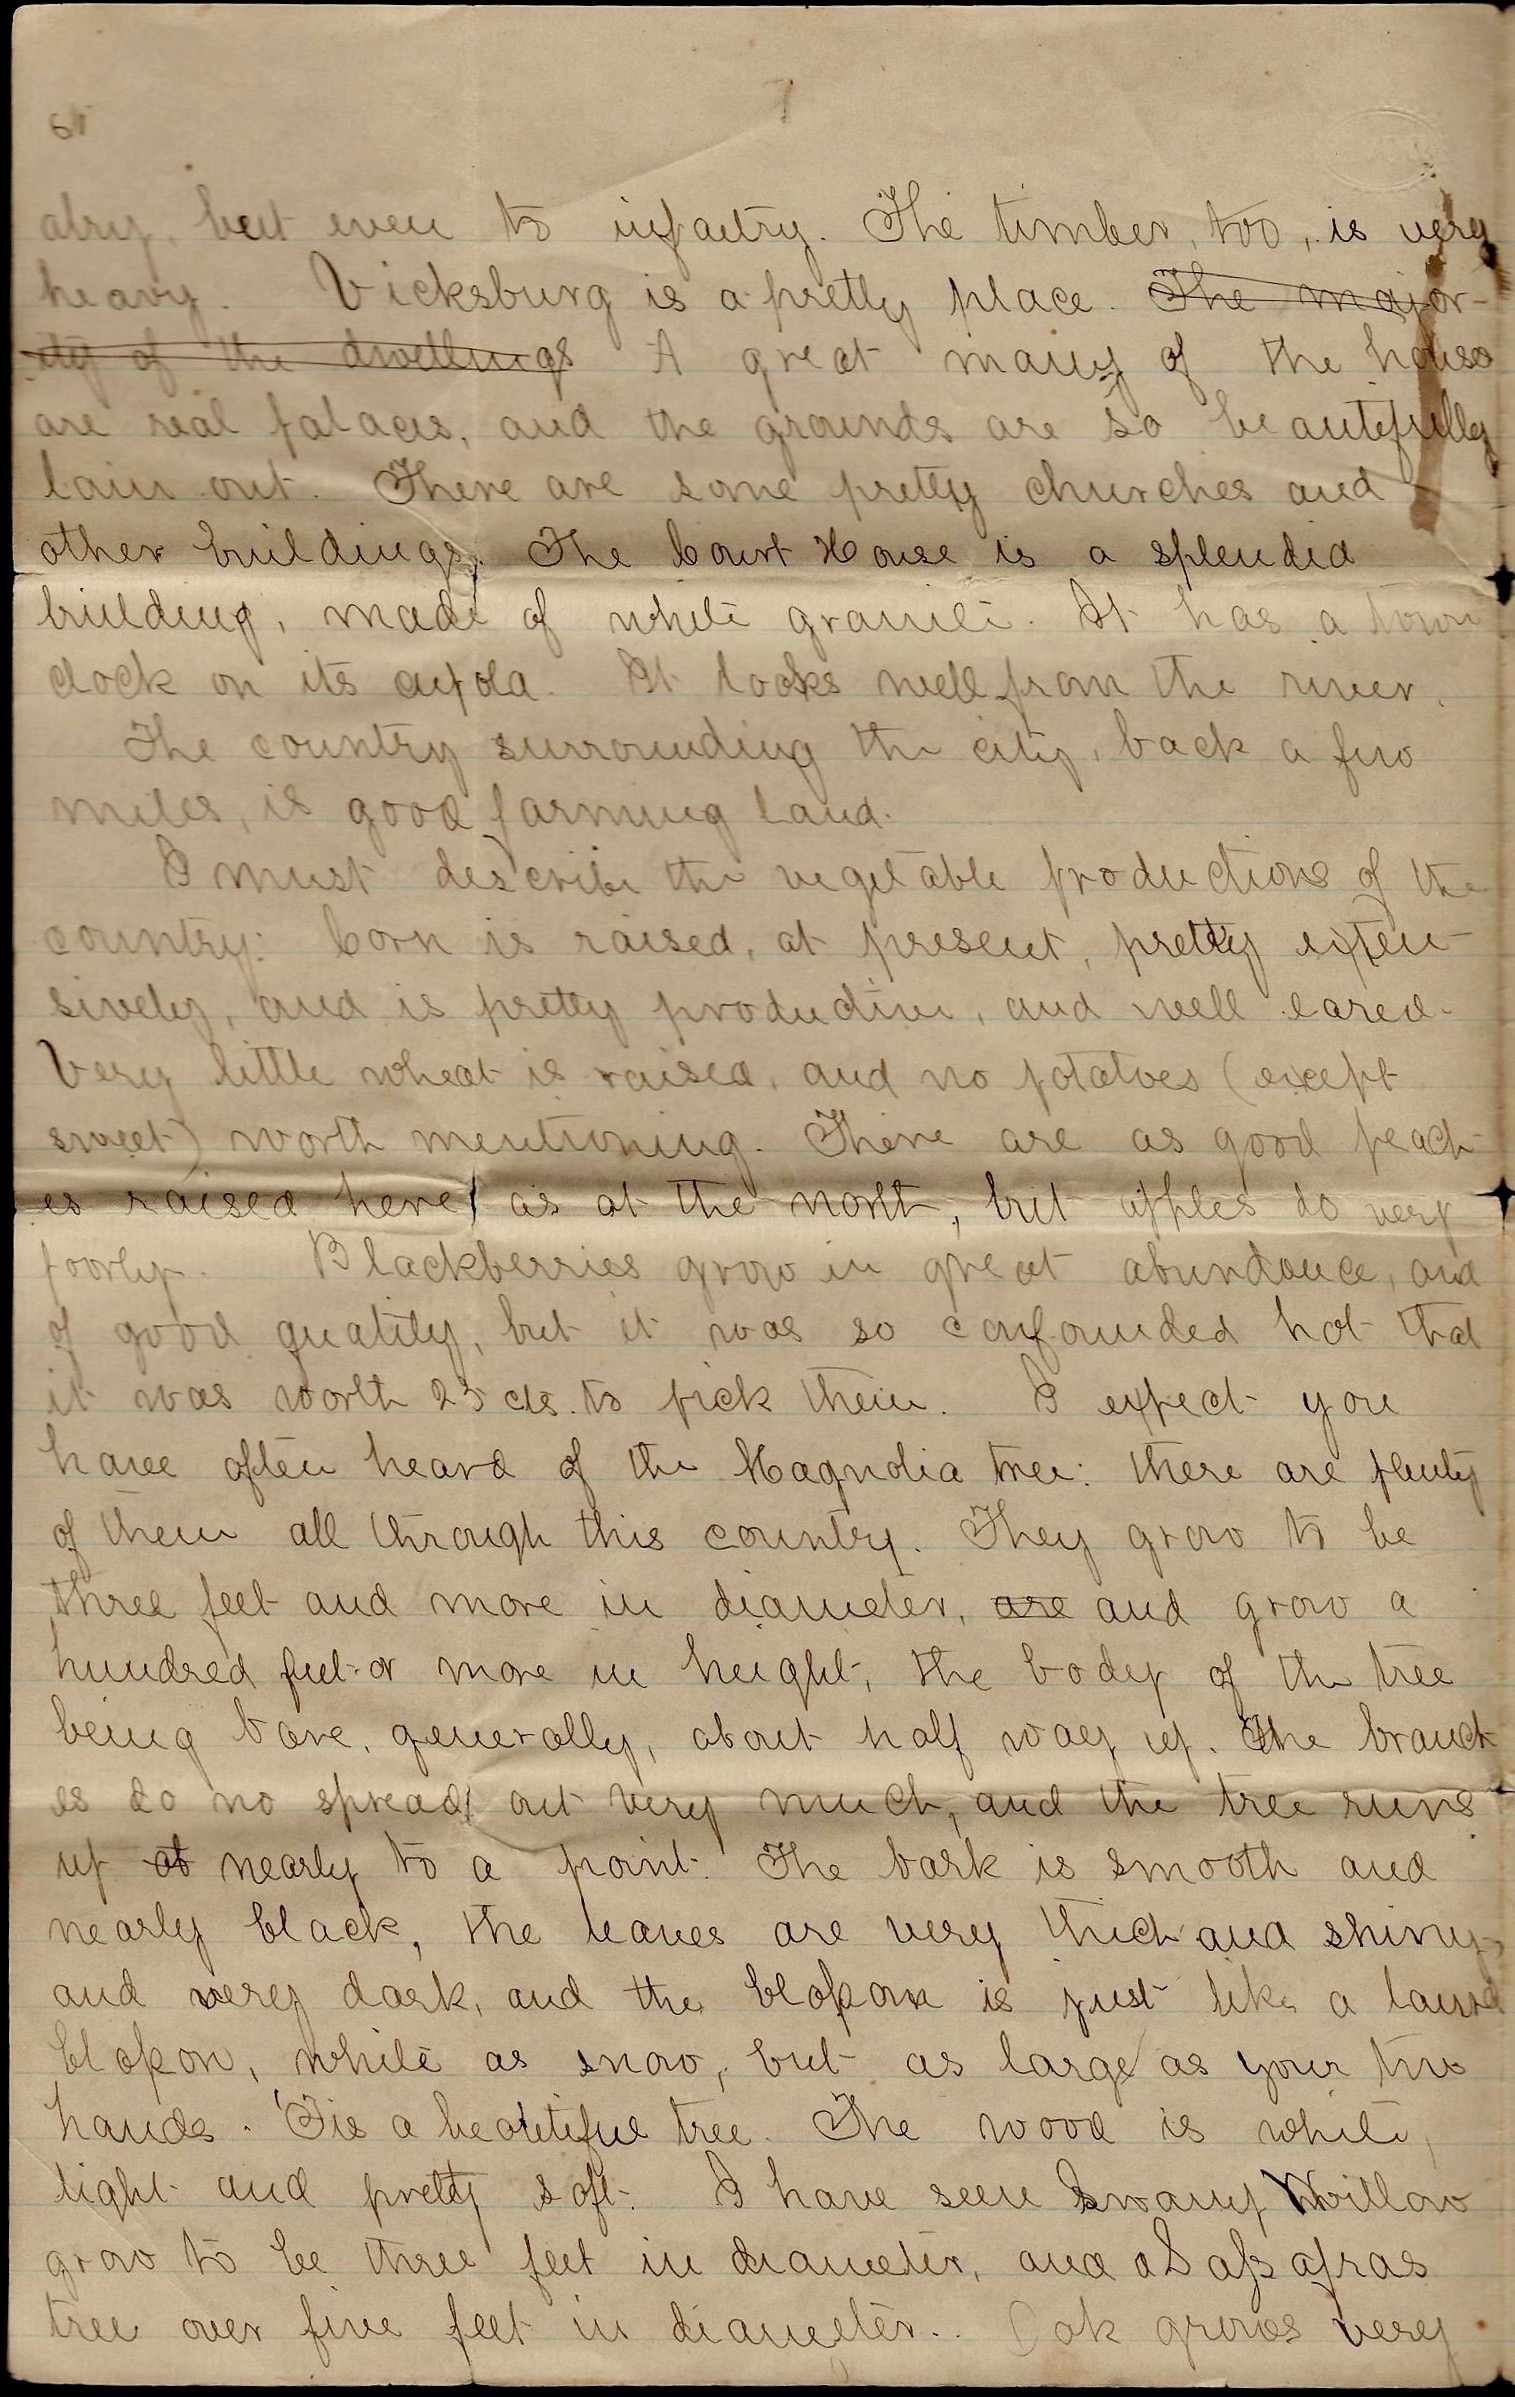 alry, but even to infactry. The timber, too, is very
heavy. Vicksburg is a pretty place. The major-
ity of the dwellings A great many of the house
are real palaces, and the grounds are so beautifully
lain out. There are some pretty churches and
other buildings. The Court House is a splendid
building, made of white granite. It has a town
clock on its cupola. It looks well from the river.
The country surrounding the city, back a few
miles, is good farming land.
I must describe the vegetable productions of the
country: Corn is raised, at present, pretty exten-
sively, and is pretty productive, and well eared.
Very little wheat is raised, and no potatoes (except
sweet) worth mentioning. There are as good peach-
es raised here as at the north, but apples do very
poorly. Blackberries grow in great abundance, and
of good quality, but it was so confounded hot that
it was worth 25 cts. to pick them. I expect you
have often heard of the Magnolia tree: there are plenty
of them all through this country. They grow to be
three feet and more in diameter, are and grow a
hundred feet or more in height, the body of the tree
being bare, generally, about half way up. The branch-
es do no spread out very much, and the tree runs
up at nearly to a point. The bark is smooth and
nearly black, the leaves are very thick and shiny,
and very dark, and the blossom is just like a laurel
blosson, white as snow, but as large as your two
hands. 'Tis a beautiful tree. The wood is white,
light and pretty soft. I have seen Swamp Willow
grow to be three feet in diameter, and a Sassafras
tree over five feet in diameter. Oak grows very